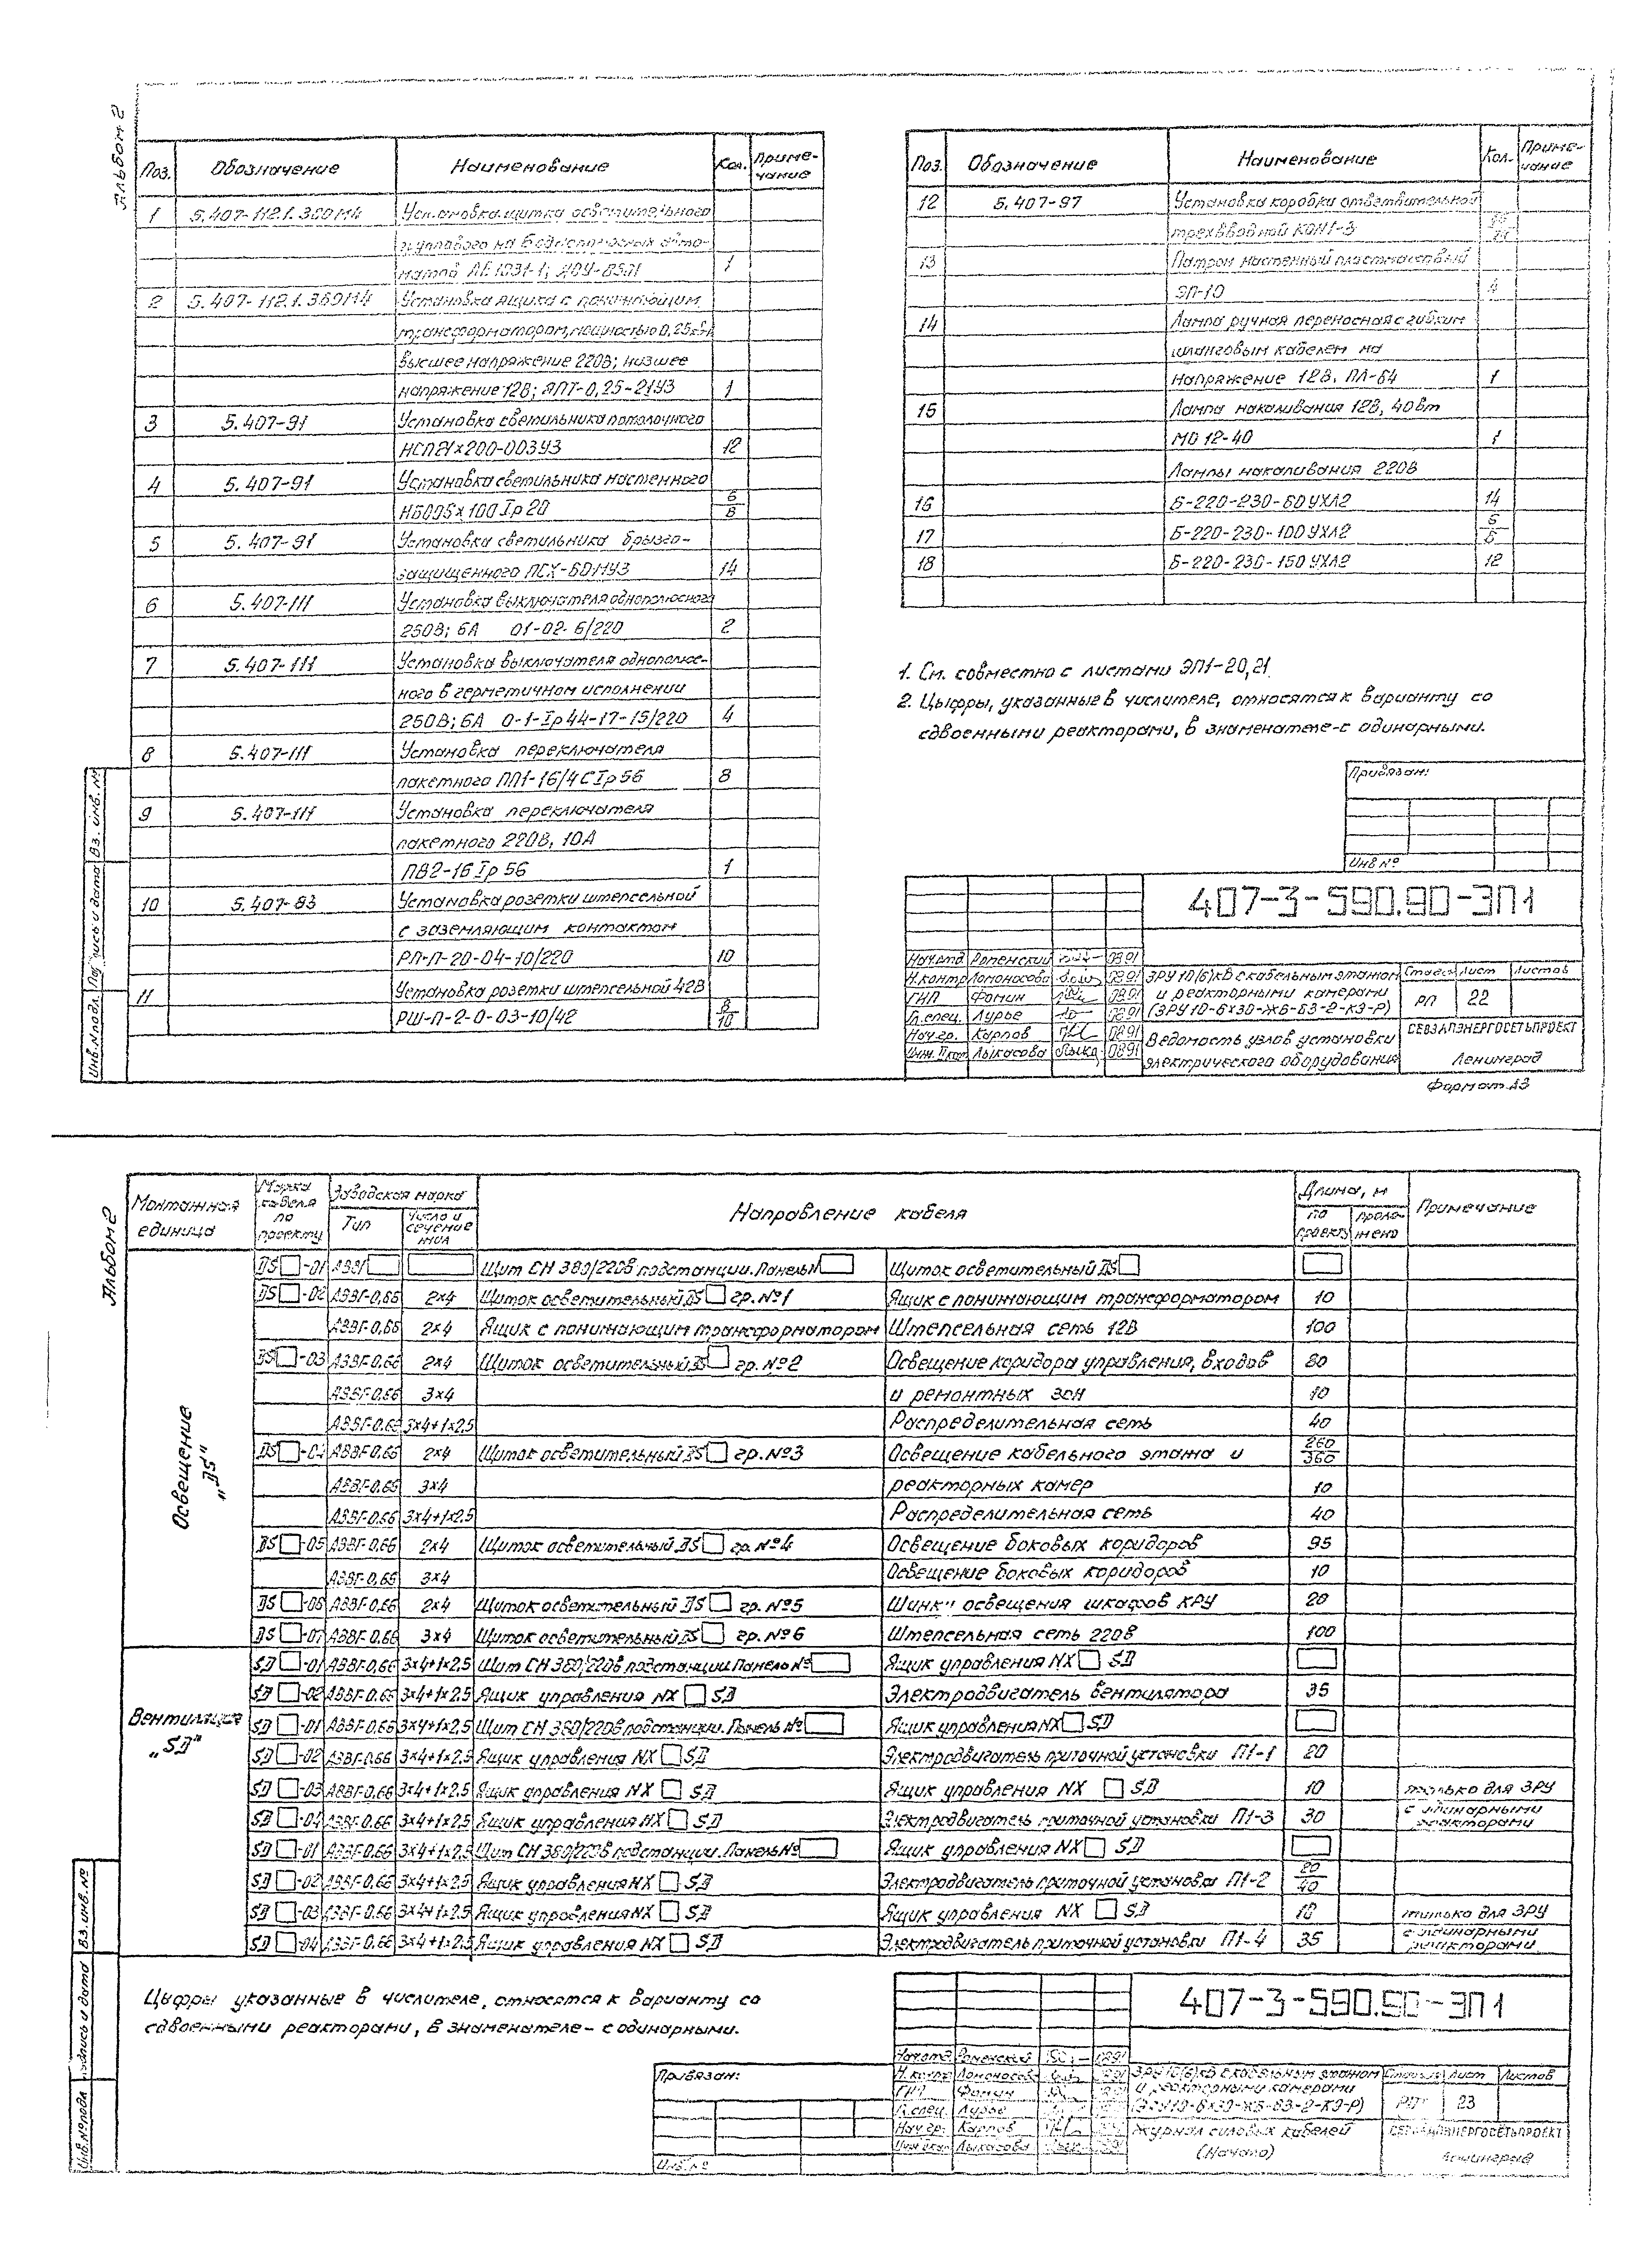 Альбом 2
Поз. Обозначение Наименование Кол. Приме-
чание
1 5.407-112.1.360М4 Установка щитка осветительного
группового на 6 однополюсных авто-
матов АЕ1031-1; ЯОУ-8501 1
2 5.407-112.1.360М4 Установка ящика с понижающим
трансформатором, мощностью 0,25кВА
высшее напряжение 220В; низшее
напряжение 12В; ЯПТ-0,25-21У3 1
3 5.407-91 Установка светильника потолочного
НСП21х200-003У3 12
4 5.407-91 Установка светильника настенного
НБ005х100 Iр20 6/8
5 5.407-91 Установка светильника брызго-
защищенного ПСХ-60МУ3 14
6 5.407-111 Установка выключателя однополюсного
250В; 6А 01-02-6/220 2
7 5.407-111 Установка выключателя однополюс-
ного в герметичном исполнении
250В; 6А 0-1-Iр44-17-15/220 4
8 5.407-111 Установка переключателя
пакетного ПП1-16/4С Iр56 8
9 5.407-111 Установка переключателя
пакетного 220В, 10А
ПВ2-16 Iр56 1
10 5.407-83 Установка розетки штепсельной
с заземляющим контактом
РП-П-20-04-10/220 10
11 Установка розетки штепсельной 42В
РШ-П-2-0-03-10/42 8/10
Поз. Обозначение Наименование Кол. Приме-
чание
12 5.407-97 Установка коробки ответвительной
трехвводной
13 Патрон настенный пластмассовый
ЭП-10 4
14 Лампа ручная переносная с гибким
шланговым кабелем на
напряжение 12В, ПЛ-64 1
15 Лампа накаливания 12В, 40вт
МО 12-40 1
Лампы накаливания 220В
16 Б-220-230-60 УХЛ2 14
17 Б-220-230-100 УХЛ2 6/8
18 Б-220-230-150 УХЛ2 12
1. См. совместно с листами ЭП1-20,21.
2. Цыфры, указанные в числителе, относятся к варианту со
сдвоенными реакторами, в знаменателе-с одинарными.
Привязан:
Инв №
407-3-590.90-ЭП1
Нач.отд. Роменский 0891
Н.контр. Ломоносова 0891 ЗРУ 10(6)кВ с кабельным этажом Стадия Лист Листов
ГИП Фомин 0891 и реакторными камерами РП 22
Гл.спец. Лурье 0891 (ЗРУ10-6х30-ЖБ-БЗ-2-КЭ-Р)
Нач.гр. Карпов 0891 Ведомость узлов установки СЕВЗАПЭНЕРГОСЕТЬПРОЕКТ
Инж. II кат. Лыкасова 0891 электрического оборудования Ленинград
Формат А3
Инв.№ подл. Подпись и дата Вз. инв. №
Альбом 2
Монтажная единица Марка кабеля по проекту Заводская марка Направление кабеля Длина, м Примечание
Тип Число и сечение жил по проекту проло-жено
Освещение „DS"
DS□-01 АВВГ□ □ Щит СН 380/220В подстанции. Панель №□ Щиток осветительный DS□ □
DS□-02 АВВГ-0,66 2х4 Щиток осветительный DS□ гр. №1 Ящик с понижающим трансформатором 10
АВВГ-0,66 2х4 Ящик с понижающим трансформатором Штепсельная сеть 12В 100
DS□-03 АВВГ-0,66 2х4 Щиток осветительный DS□ гр. №2 Освещение коридора управления, входов 80
АВВГ-0,66 3х4 и ремонтных зон 10
АВВГ-0,66 3х4+1х2,5 Распределительная сеть 40
DS□-04 АВВГ-0,66 2х4 Щиток осветительный DS□ гр. №3 Освещение кабельного этажа и 260/360
АВВГ-0,66 3х4 реакторных камер 10
АВВГ-0,66 3х4+1х2,5 Распределительная сеть 40
DS□-05 АВВГ-0,66 2х4 Щиток осветительный DS□ гр. №4 Освещение боковых коридоров 95
АВВГ-0,66 3х4 Освещение боковых коридоров 10
DS□-06 АВВГ-0,66 2х4 Щиток осветительный DS□ гр. №5 Шинки освещения шкафов КРУ 20
DS□-07 АВВГ-0,66 3х4 Щиток осветительный DS□ гр. №6 Штепсельная сеть 220В 100
Вентиляция „SD"
SD□-01 АВВГ-0,66 3х4+1х2,5 Щит СН 380/220В подстанции. Панель №□ Ящик управления NX□SD □
SD□-02 АВВГ-0,66 3х4+1х2,5 Ящик управления NX□SD Электродвигатель вентилятора 35
SD□-01 АВВГ-0,66 3х4+1х2,5 Щит СН 380/220В подстанции. Панель №□ Ящик управления NX□SD □
SD□-02 АВВГ-0,66 3х4+1х2,5 Ящик управления NX□SD Электродвигатель приточной установки П1-1 20
SD□-03 АВВГ-0,66 3х4+1х2,5 Ящик управления NX□SD Ящик управления NX□SD 10 только для ЗРУ
SD□-04 АВВГ-0,66 3х4+1х2,5 Ящик управления NX□SD Электродвигатель приточной установки П1-3 30 с одинарными реакторами
SD□-01 АВВГ-0,66 3х4+1х2,5 Щит СН 380/220В подстанции. Панель №□ Ящик управления NX□SD □
SD□-02 АВВГ-0,66 3х4+1х2,5 Ящик управления NX□SD Электродвигатель приточной установки П1-2 20/40
SD□-03 АВВГ-0,66 3х4+1х2,5 Ящик управления NX□SD Ящик управления NX□SD 10 только для ЗРУ
SD□-04 АВВГ-0,66 3х4+1х2,5 Ящик управления NX□SD Электродвигатель приточной установки П1-4 35 с одинарными реакторами
Цыфры указанные в числителе, относятся к варианту со
сдвоенными реакторами, в знаменателе- с одинарными.
Привязан:
Инв.№
407-3-590.90-ЭП1
Нач.отд. Роменский 0891
Н.контр. Ломоносова 0891 ЗРУ 10(6)кВ с кабельным этажом Стадия Лист Листов
ГИП Фомин и реакторными камерами РП 23
Гл.спец. Лурье (ЗРУ10-6х30-ЖБ-БЗ-2-КЭ-Р)
Нач.гр. Карпов Журнал силовых кабелей СЕВЗАПЭНЕРГОСЕТЬПРОЕКТ
Лыкасова (Начало) Ленинград
Инв.№ подл. Подпись и дата Вз. инв. №